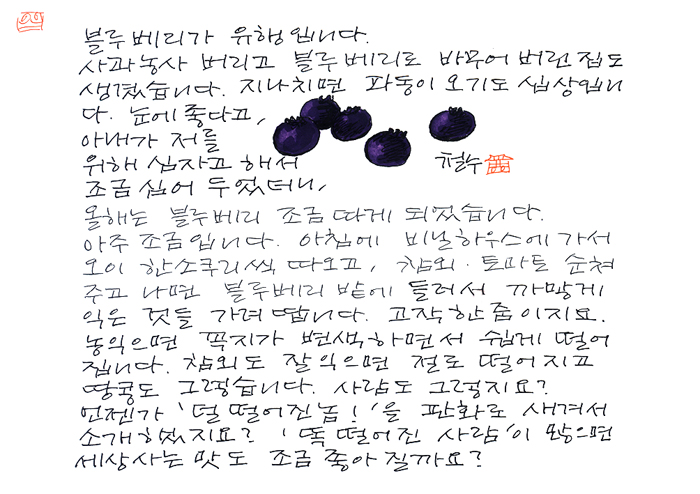 블루베리가 유행입니다.
사과농사 버리고 블루베리로 바꾸어 버린 집도
생겼습니다. 지나치면 파동이 오기도 십상입니
다. 눈에 좋다고,
아내가 저를
위해 심자고 해서
철수
조금 심어 두었더니,
올해는 블루베리 조금 따게 되었습니다.
아주 조금입니다. 아침에 비닐하우스에 가서
오이 한소쿠리씩 따오고, 참외·토마토 순쳐
주고 나면 블루베리 밭에 들러서 까맣게
익은 것들 가려 땁니다. 고작 한 줌이지요.
농익으면 꼭지가 변색하면서 쉽게 떨어
집니다. 참외도 잘 익으면 절로 떨어지고
땅콩도 그렇습니다. 사람도 그렇지요?
언젠가 '덜 떨어진 놈!'을 판화로 새겨서
소개했지요? '똑 떨어진 사람'이 많으면
세상사는 맛도 조금 좋아질까요?